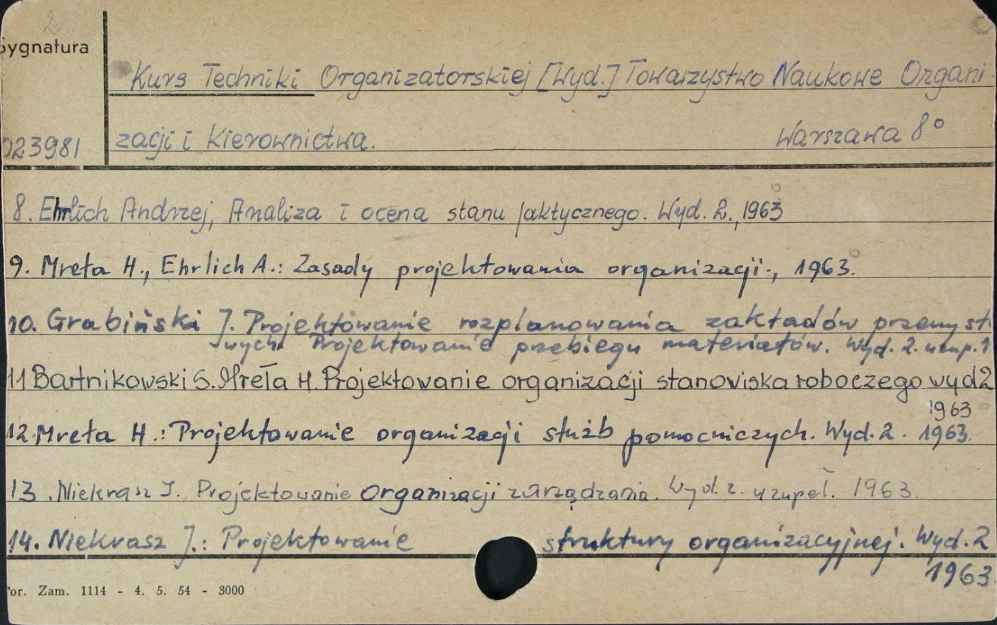 Sygnatura
Kurs Techniki Organizatorskiej [Wyd.] Towarzystwo Naukowe Organi-
023981 zacji i Kierownictwa. Warszawa 8°
8. Ehrlich Andrzej, Analiza i ocena stanu faktycznego. Wyd. 2., 1963
9. Mreła H., Ehrlich A.: Zasady projektowania organizacji., 1963.
10. Grabiński J. Projektowanie rozplanowania zakładów przemysł
wych Projektowanie przebiegu materiałów. Wyd. 2. uzup. 1
11 Bartnikowski S. Mreła H. Projektowanie organizacji stanowiska roboczego wyd 2
1963
12. Mreła H.: Projektowanie organizacji służb pomocniczych. Wyd. 2. 1963.
13. Niekrasz J. Projektowanie organizacji zarządzania. Wyd. 2. uzupeł. 1963.
14. Niekrasz J.: Projektowanie struktury organizacyjnej. Wyd. 2
1963
or. Zam. 1114 - 4. 5. 54 - 3000